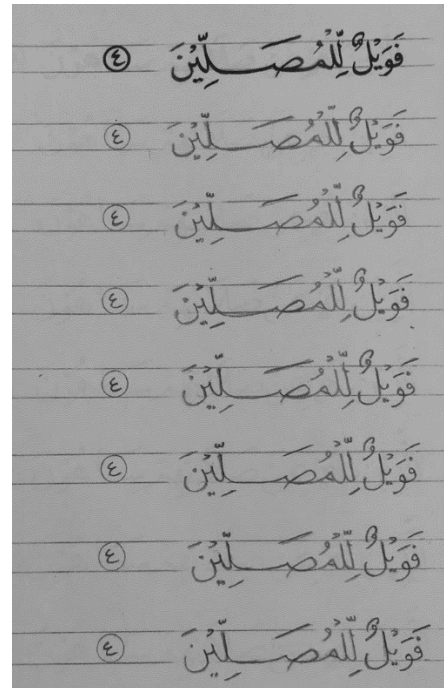 فَوَيْلٌ لِّلْمُصَلِّيْنَ ٤
فَوَيْلٌ لِّلْمُصَلِّيْنَ ٤
فَوَيْلٌ لِّلْمُصَلِّيْنَ ٤
فَوَيْلٌ لِّلْمُصَلِّيْنَ ٤
فَوَيْلٌ لِّلْمُصَلِّيْنَ ٤
فَوَيْلٌ لِّلْمُصَلِّيْنَ ٤
فَوَيْلٌ لِّلْمُصَلِّيْنَ ٤
فَوَيْلٌ لِّلْمُصَلِّيْنَ ٤